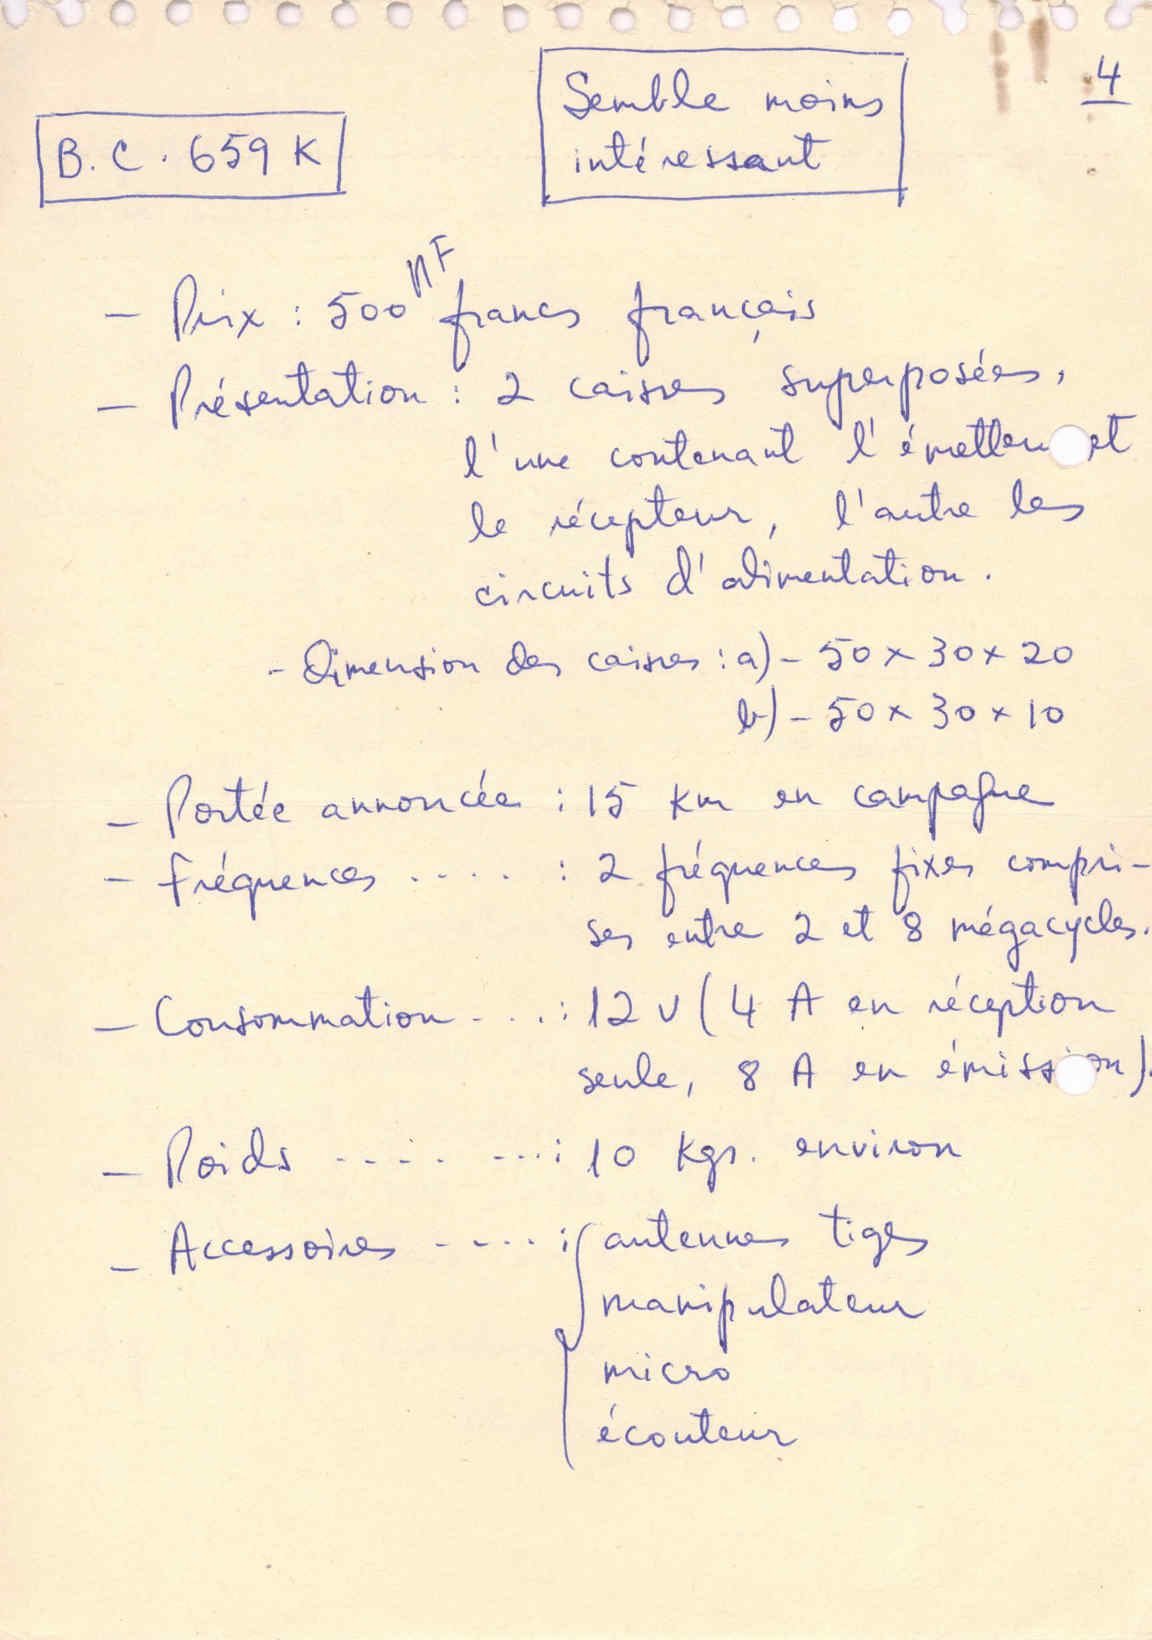 4
Semble moins
intéressant
B.C. 659 K
- Prix : 500 NF francs français
- Présentation : 2 caisses superposées,
l'une contenant l'émetteur et
le récepteur, l'autre les
circuits d'alimentation.
- Dimension des caisses : a) - 50 x 30 x 20
b) - 50 x 30 x 10
- Portée annoncée : 15 Km en campagne
- Fréquences .... : 2 fréquences fixes compri-
ses entre 2 et 8 mégacycles.
- Consommation - ...: 12 v (4 A en réception
seule, 8 A en émission).
- Poids ---- ---: 10 Kgs. environ
- Accessoires ----: antennes tiges
manipulateur
micro
écouteur